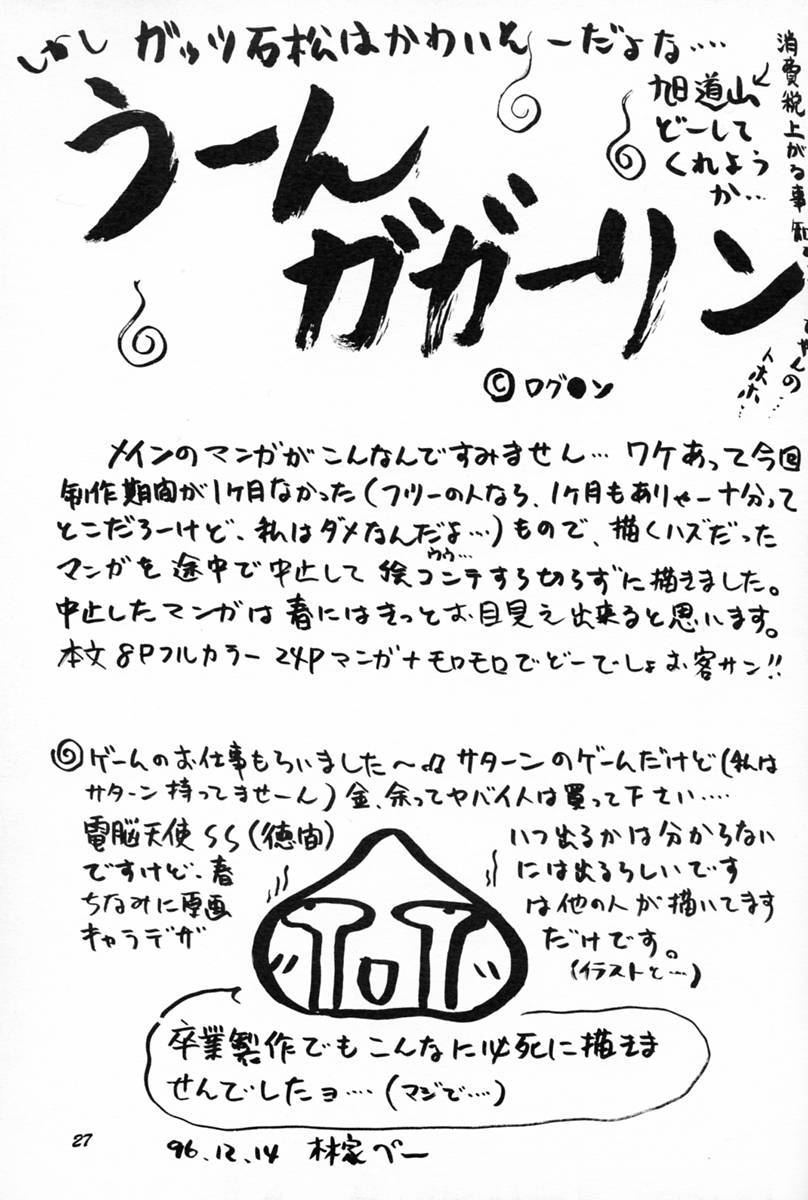 しかし ガッツ石松はかわいそーだよな‥‥
消費税上がる事
旭道山
どーして
くれよう
か…
うーん
ガガーリン
©ログ●ン
メインのマンガがこんなんですみません… ワケあって今回
制作期間が1ケ月なかった(フツーの人なら、1ケ月もありゃー十分って
とこだろーけど、私はダメなんだよ…)もので、描くハズだった
マンガを途中で中止して 絵コンテすら切らずに描きました。
ウゥ…
中止したマンガは春にはきっとお目見え出来ると思います。
本文8Pフルカラー24Pマンガ+モロモロでどーでしょお客サン!!
◎ゲームのお仕事もらいました〜♫ サターンのゲームだけど(私は
サターン持ってませーん)金、余ってヤバイ人は買って下さい‥‥
電脳天使SS(徳間) いつ出るかは分からない
ですけど、春 には出るらしいです
ちなみに原画 は他の人が描いてます
キャラデザ だけです。
(イラストと…)
卒業製作でもこんなに必死に描きま
せんでしたョ‥‥(マジで‥‥)
27
96.12.14 林家ペー